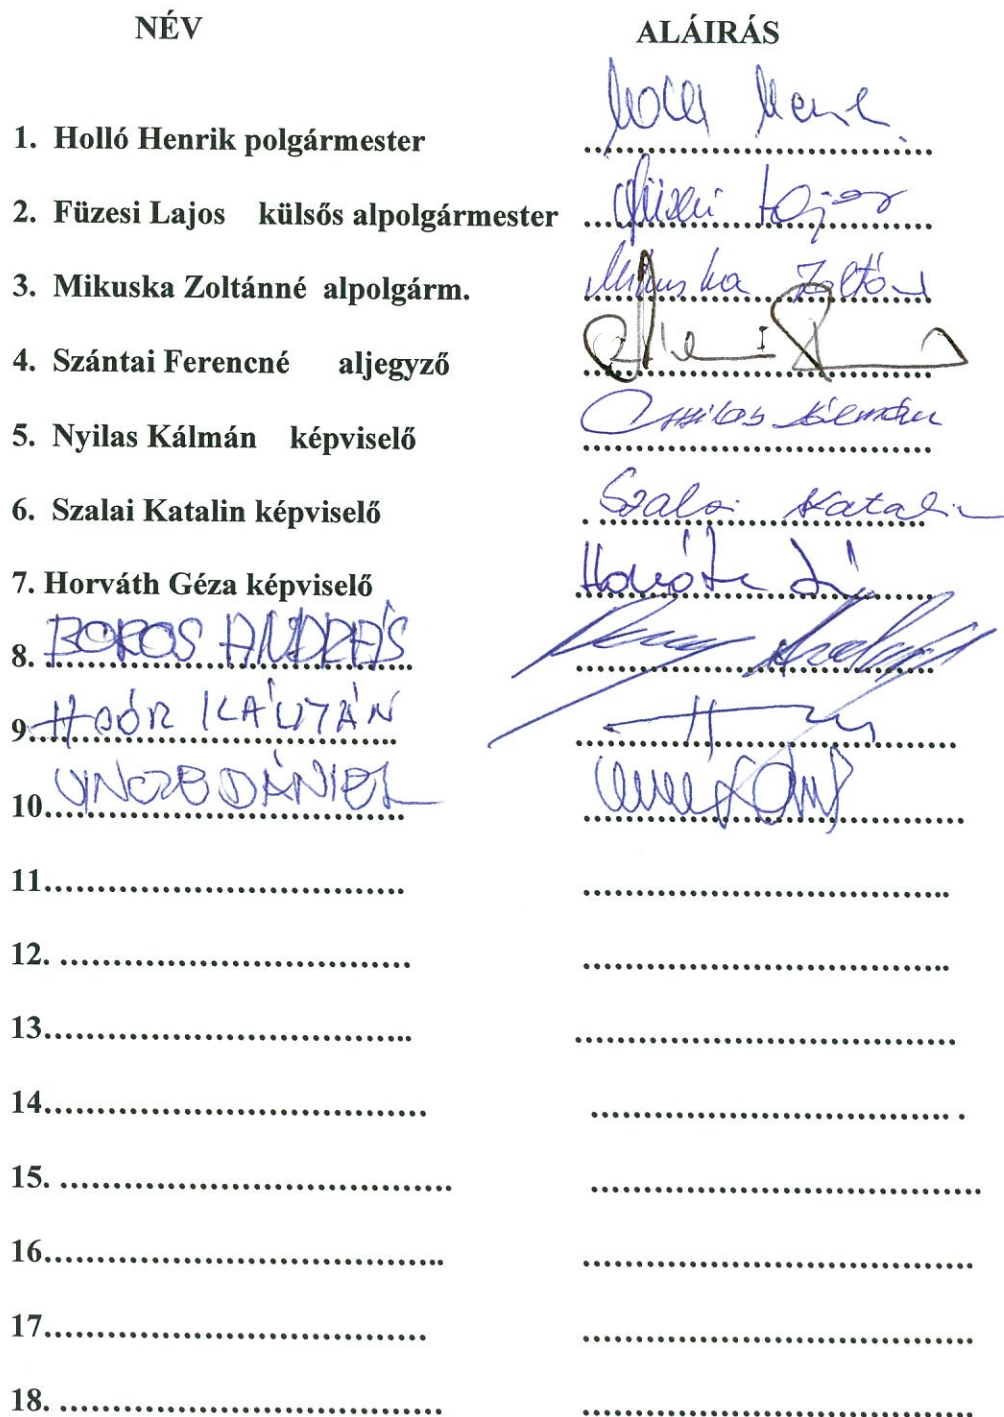 NÉV ALÁIRÁS
1. Holló Henrik polgármester
2. Füzesi Lajos külsős alpolgármester Füzesi Lajos
3. Mikuska Zoltánné alpolgárm. Mikuska Zoltán
4. Szántai Ferencné aljegyző
5. Nyilas Kálmán képviselő Nyilas Kálmán
6. Szalai Katalin képviselő Szalai Katalin
7. Horváth Géza képviselő Horváth
8. BOROS ANDRÁS
9.
10. VINCZE DÁNIEL
11.
12.
13.
14.
15.
16.
17.
18.